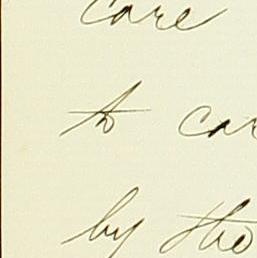 care
to car
by the